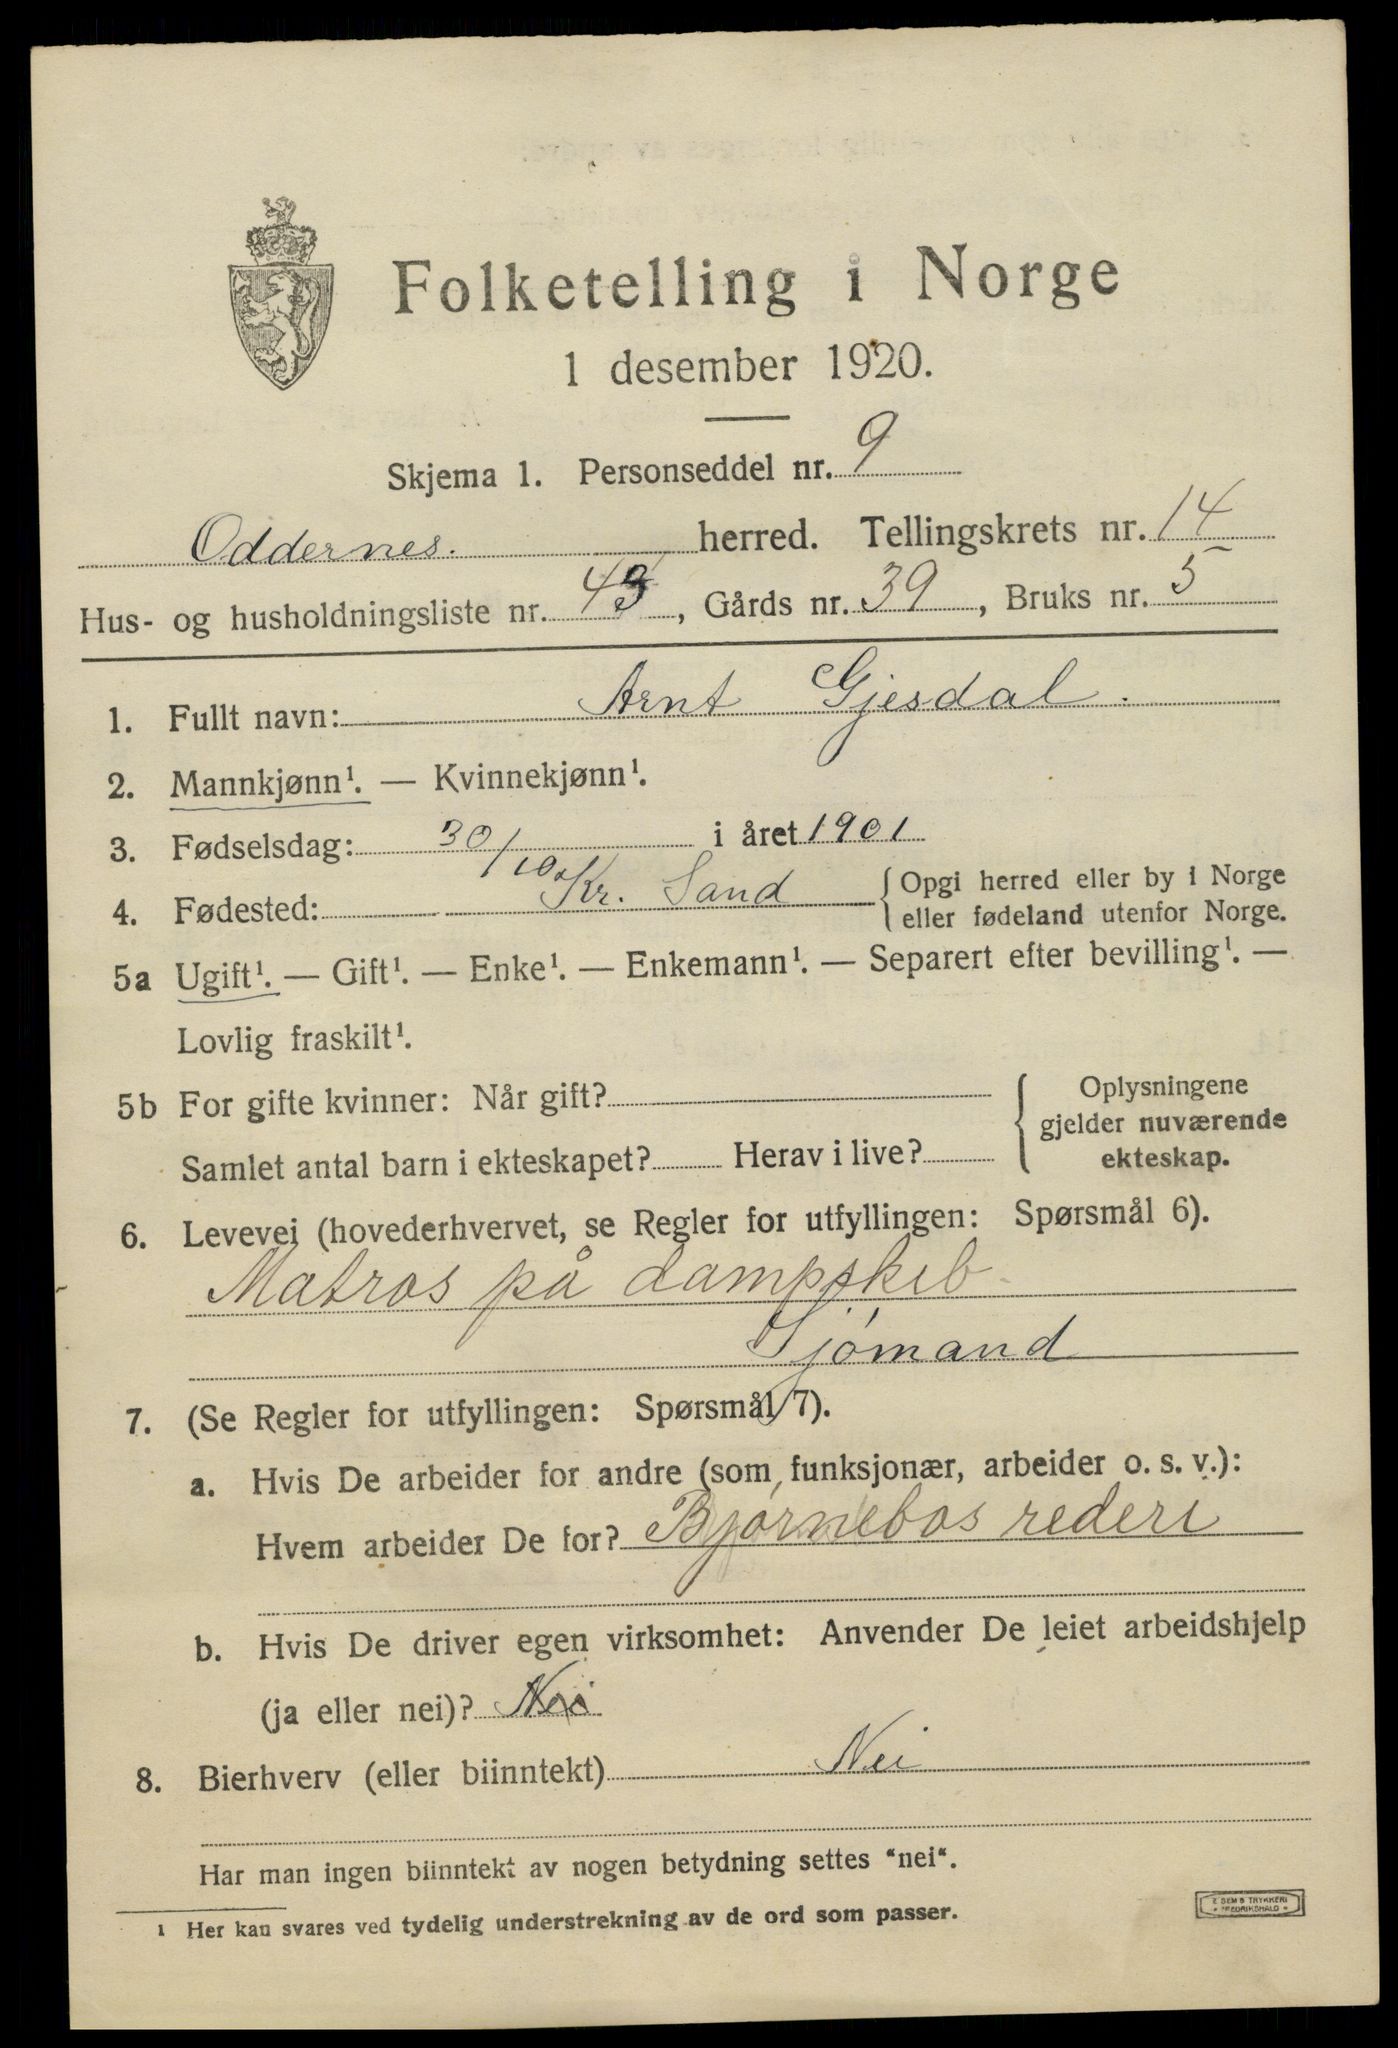 Folketelling i Norge
1 desember 1920.
Skjema 1. Personseddel nr. 9
Oddernes. herred. Tellingskrets nr. 14
Hus- og husholdningsliste nr. 43, Gårds nr. 39, Bruks nr. 5
1. Fullt navn: Arnt Gjesdal.
2. Mannkjønn¹. — Kvinnekjønn¹.
3. Fødselsdag: 30/10 i året 1901
4. Fødested: Kr. Sand { Opgi herred eller by i Norge
eller fødeland utenfor Norge.
5a Ugift¹. — Gift¹. — Enke¹. — Enkemann¹. — Separert efter bevilling¹. —
Lovlig fraskilt¹.
5b For gifte kvinner: Når gift? { Oplysningene
gjelder nuværende
Samlet antal barn i ekteskapet? Herav i live? ekteskap.
6. Levevei (hovederhvervet, se Regler for utfyllingen: Spørsmål 6).
Matros på dampskib
Sjømand
7. (Se Regler for utfyllingen: Spørsmål 7).
a. Hvis De arbeider for andre (som funksjonær, arbeider o. s. v.):
Hvem arbeider De for? Bjørnebos rederi
b. Hvis De driver egen virksomhet: Anvender De leiet arbeidshjelp
(ja eller nei)? Nei
8. Bierhverv (eller biinntekt) Nei
Har man ingen biinntekt av nogen betydning settes "nei".
¹ Her kan svares ved tydelig understrekning av de ord som passer.
E SEM'S TRYKKERI
FREDRIKSHALD